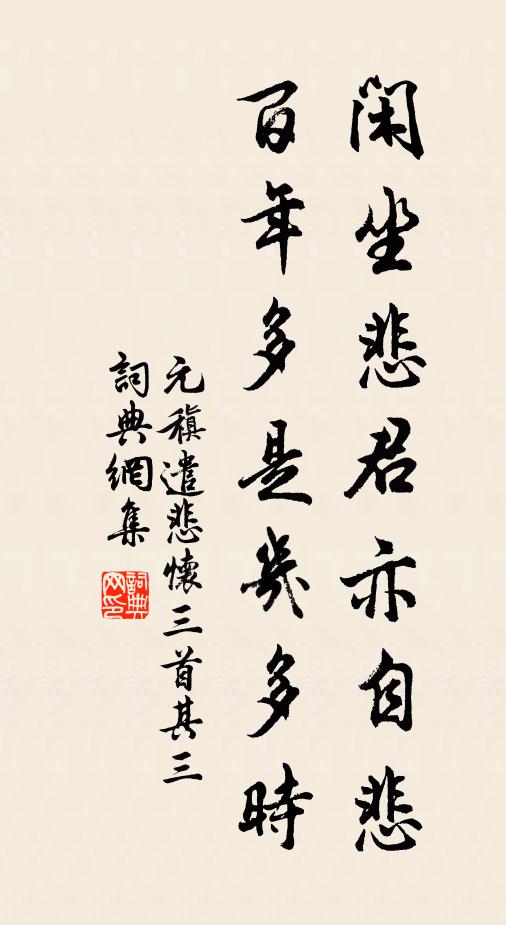 閑坐悲君亦自悲
百年多是幾多時
元稹遣悲懷三首其三
詞典網集
詞典網印